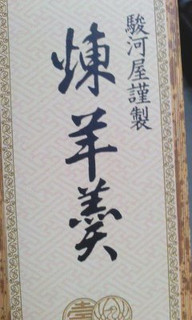 駿河屋謹製
煉羊羹